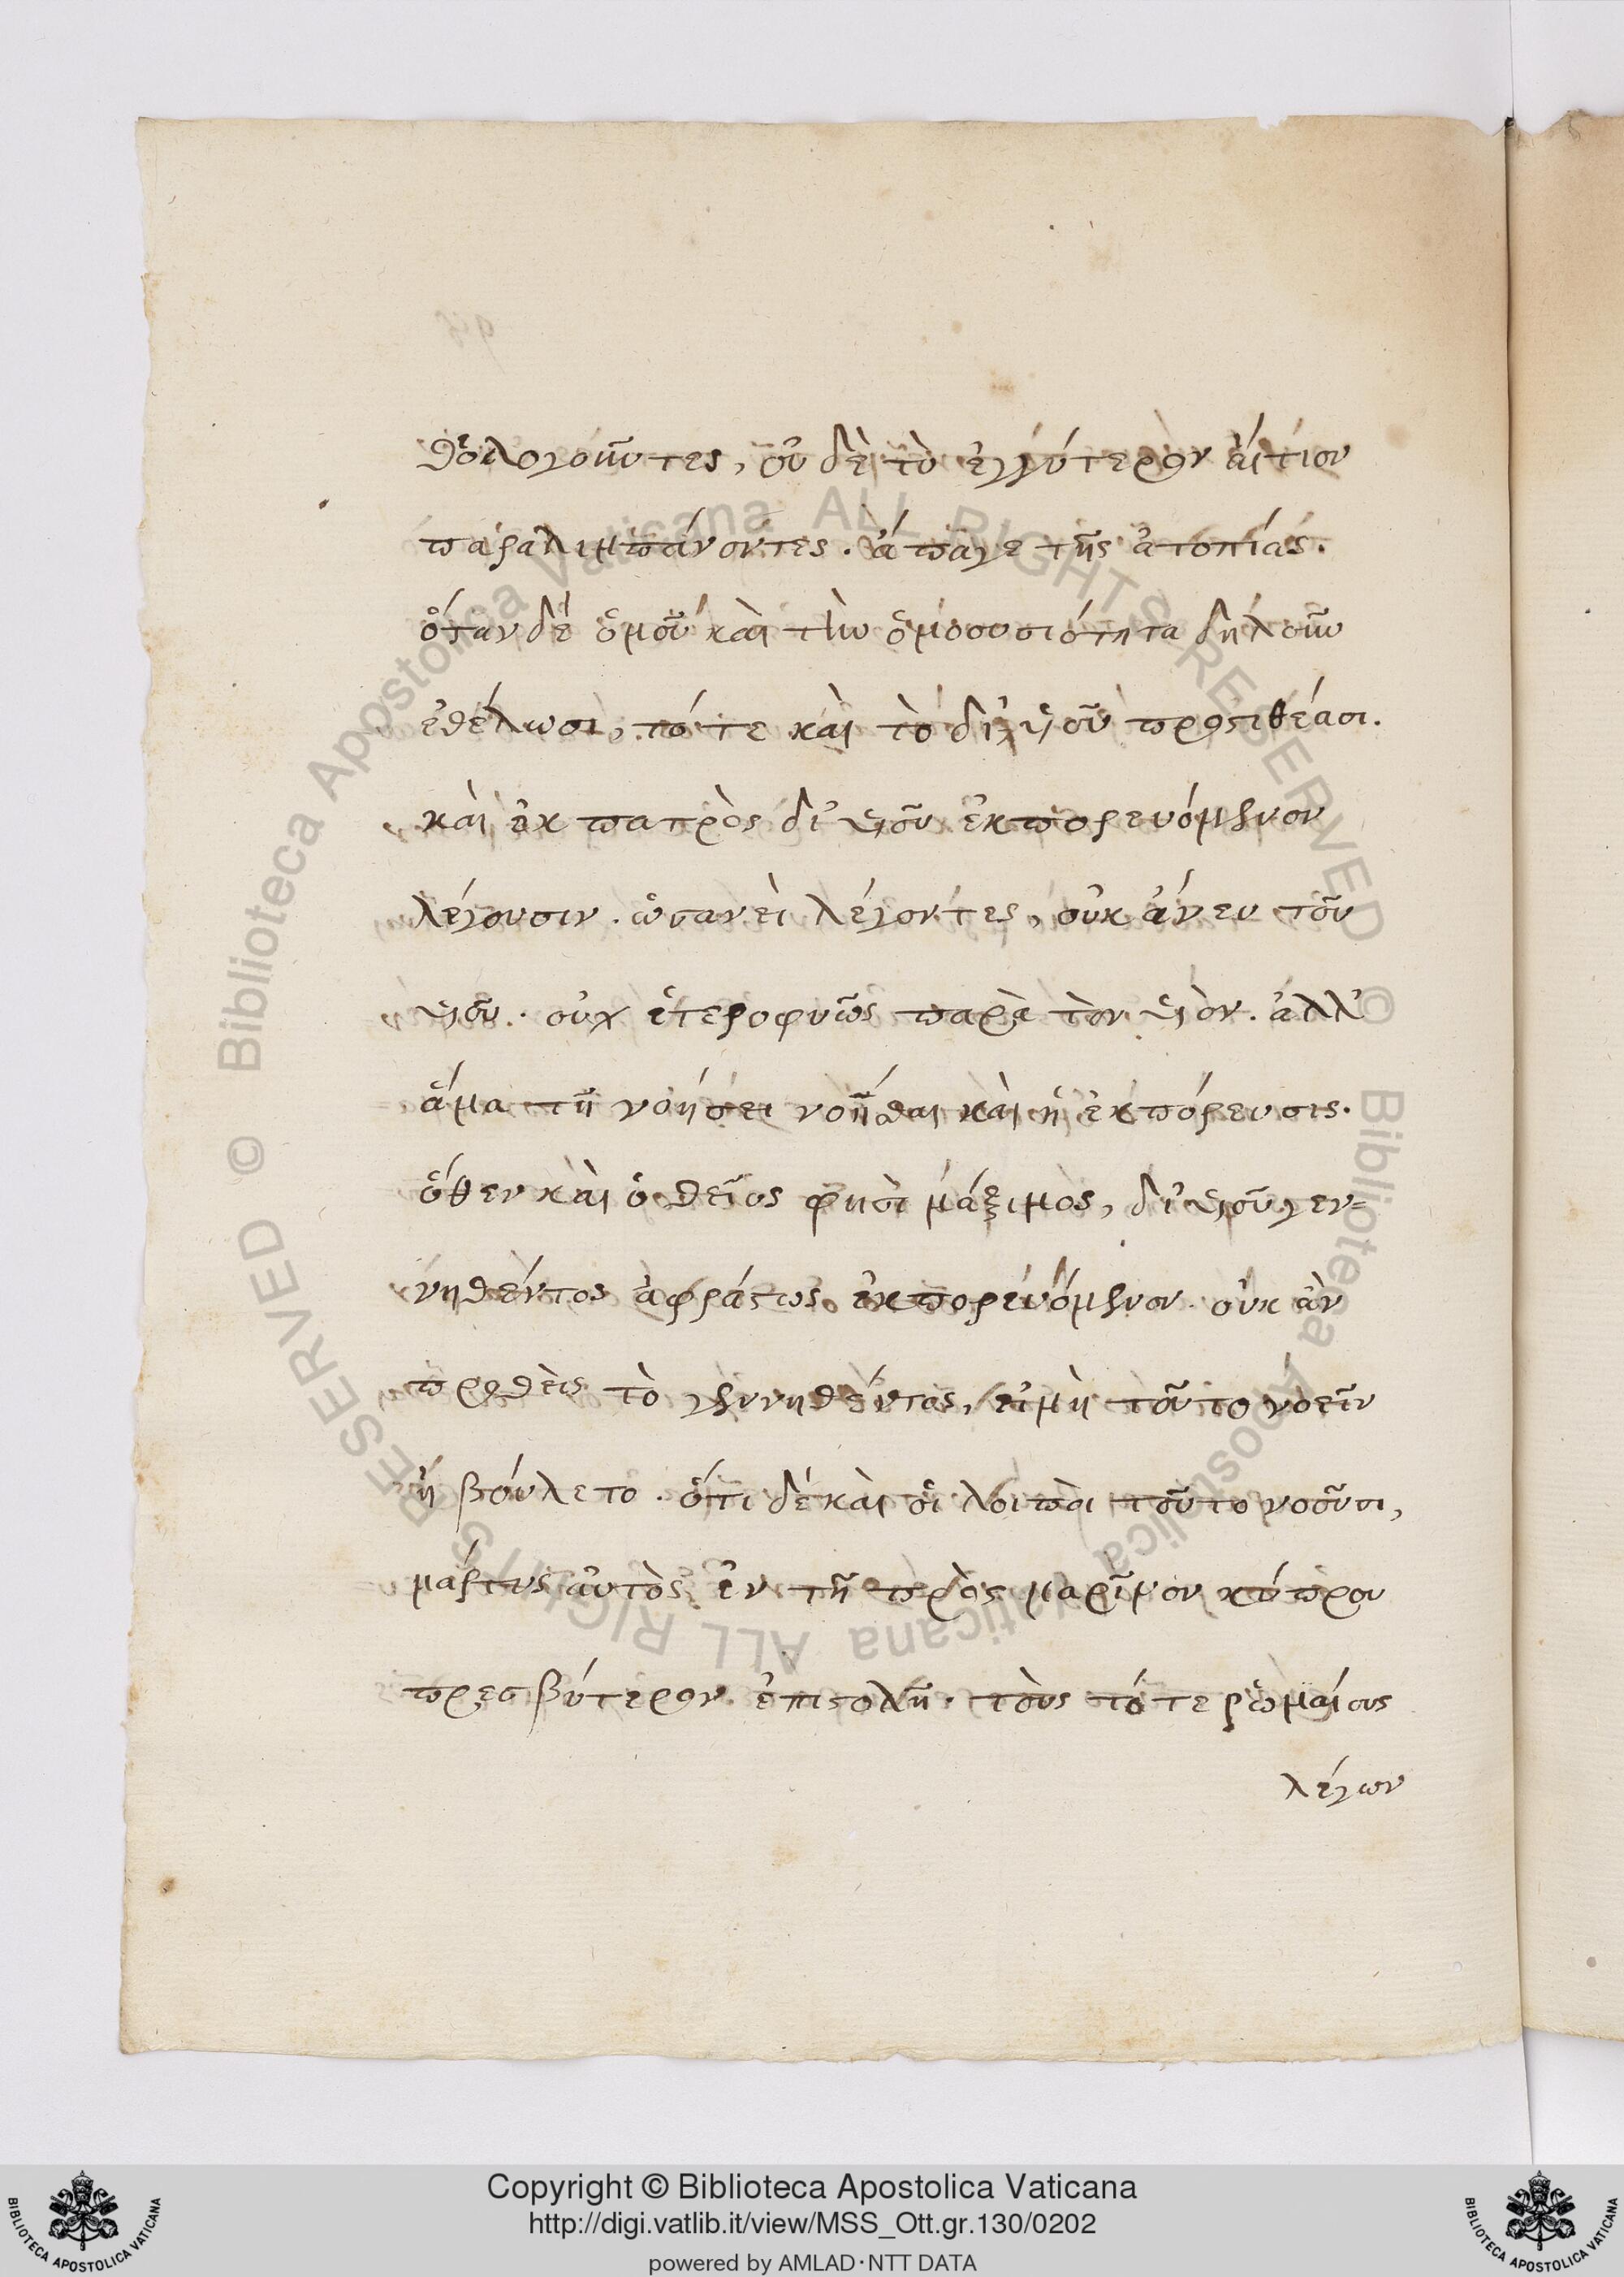 θεολογοῦντες, οὐ δὲ τὸ ἐγγύτερον αἴτιον
παραλιμπάνοντες. ἄπαγε τῆς ἀτοπίας.
ὅταν δέ ὁμοῦ καὶ τὴν ὁμοουσιότητα δηλοῦν
ἐθέλωσι, τότε καὶ τὸ δι' υἱοῦ προστιθέασι.
καὶ ἐκ πατρὸς δι' υἱοῦ ἐκπορευόμενον
λέγουσιν. ὡσανεὶ λέγοντες, οὐκ ἄνευ τοῦ
υἱοῦ. οὐχ ἑτεροφυῶς παρὰ τὸν υἱὸν. ἀλλ'
ἅμα τῆ νοήσει νοῆσθαι καὶ ἡ ἐκπόρευσις.
ὅθεν καὶ ὁ θεῖος φησὶ μάξιμος, δι' υἱοῦ γεν=
νηθέντος ἀφράστως ἐκπορευόμενον. οὐκ ἂν
προσθεὶς τὸ γεννηθέντος, εἰμὴ τοῦτο νοεῖν
ἠβούλετο. ὅτι δέ καὶ οἱ λοιποὶ τοῦτο νοοῦσι,
μάρτυς αὐτὸς ἐν τῆ πρὸς μαρῖνον κύπρου
πρεσβύτερον ἐπιστολῆ. τοὺς τότε ῥωμαίους
λέγων
Copyright © Biblioteca Apostolica Vaticana
http://digi.vatlib.it/view/MSS_Ott.gr.130/0202
powered by AMLAD·NTT DATA
BIBLIOTECA APOSTOLICA VATICANA
BIBLIOTECA APOSTOLICA VATICANA
© Biblioteca Apostolica Vaticana ALL RIGHTS RESERVED
© Biblioteca Apostolica Vaticana ALL RIGHTS RESERVED